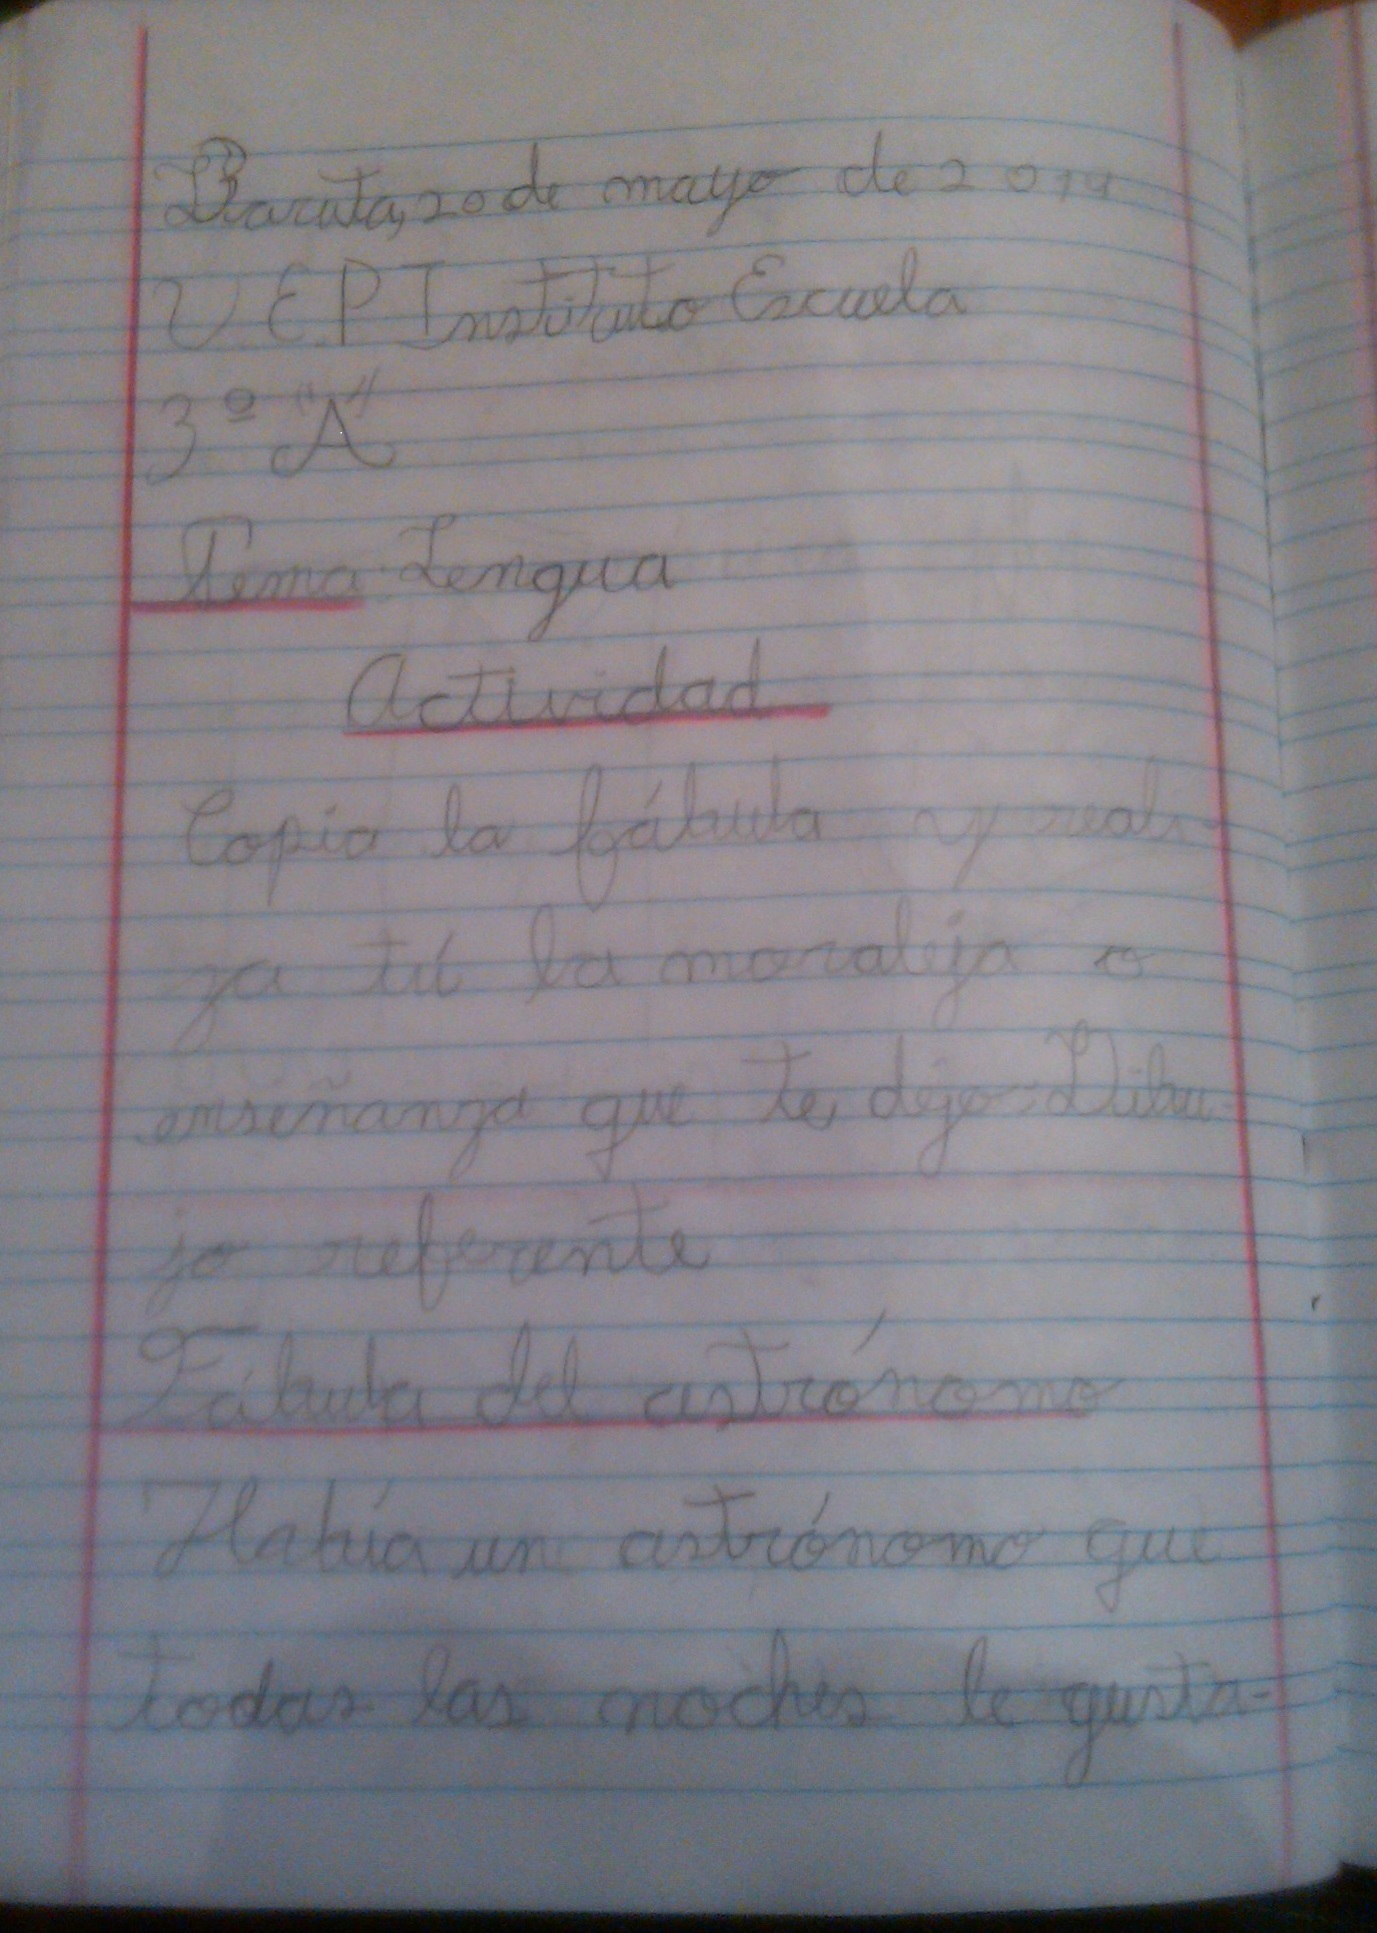 Baruta, 20 de mayo de 2014
U.E.P Instituto Escuela
3º "A"
Tema: Lengua
Actividad
Copia la fábula y reali-
za tú la moraleja o
enseñanza que te dejo. Dibu-
jo referente
Fábula del astrónomo
Había un astrónomo que
todas las noches le gusta-